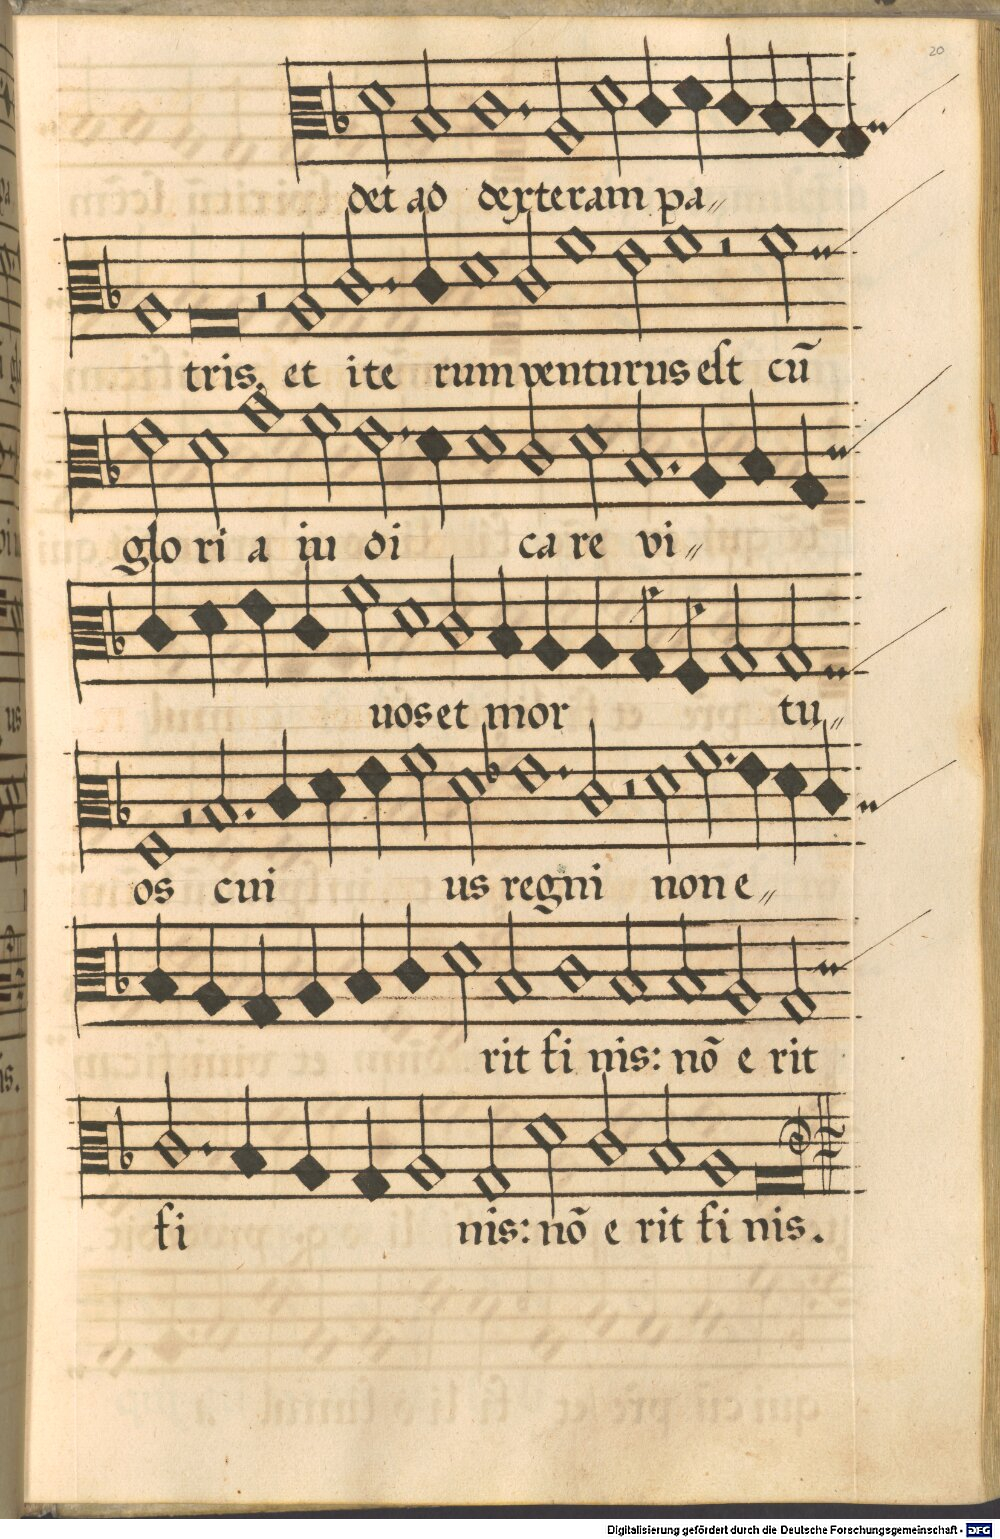 20
det ad dexteram pa„
tris, et ite rum venturus est cū
glo ri a iu di ca re vi„
uos et mor tu„
os cui us regni non e„
rit fi nis: nō e rit
fi nis: nō e rit fi nis.
Digitalisierung gefördert durch die Deutsche Forschungsgemeinschaft - DFG